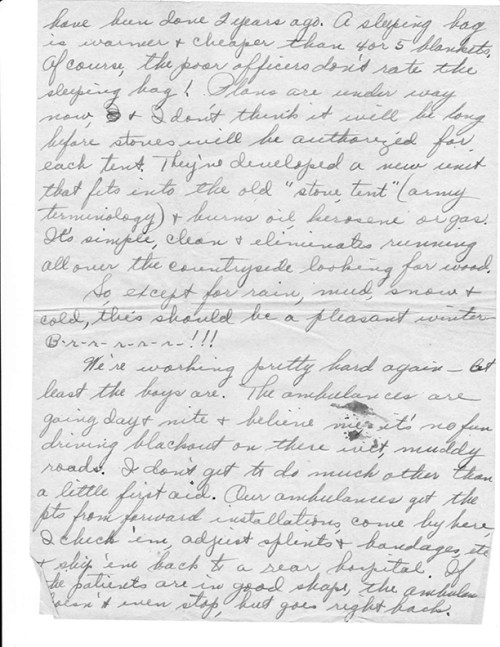 have been done 2 years ago. A sleeping bag
is warmer + cheaper than 4 or 5 blankets.
Of course, the poor officers don't rate the
sleeping bag! Plans are under way
now, + I don't think it will be long
before stoves will be authorized for
each tent. They've developed a new unit
that fits into the old "stove, tent" (army
terminology) + burns oil, kerosene or gas.
It's simple, clean + eliminates running
all over the countryside looking for wood.
So, except for rain, mud, snow +
cold, this should be a pleasant winter-
B-r-r-r-r-r-!!!
We're working pretty hard again - At
least the boys are. The ambulances are
going day + nite + believe me, it's no fun
driving blackout on these wet, muddy
roads. I don't get to do much other than
a little first aid. Our ambulances get the
pts from forward installations, come by here
I check 'em, adjust splints + bandages, etc
+ ship 'em back to a rear hospital. If
the patients are in good shape, the ambulance
doesn't even stop, but goes right back.